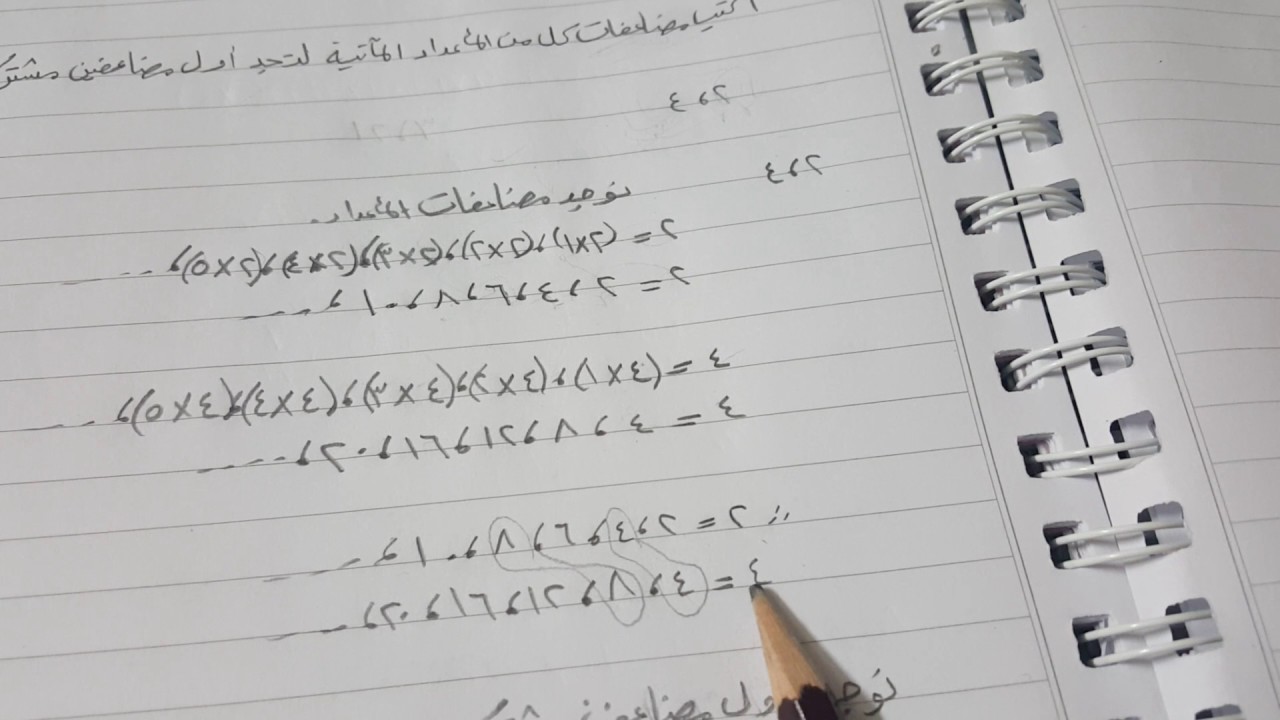 اكتب مضاعفات كل من الأعداد الآتية لتجد أول مضاعفين مشترك
٢ ، ٤
٢ ، ٤
نوجد مضاعفات الأعداد.
٢ = (٢×١) ، (٢×٢) ، (٢×٣) ، (٢×٤) ، (٢×٥) ، ...
٢ = ٢ ، ٤ ، ٦ ، ٨ ، ١٠ ، ....
٤ = (٤×١) ، (٤×٢) ، (٤×٣) ، (٤×٤) ، (٤×٥) ، ....
٤ = ٤ ، ٨ ، ١٢ ، ١٦ ، ٢٠ ، .....
∴ ٢ = ٢ ، ٤ ، ٦ ، ٨ ، ١٠ ، ....
٤ = ٤ ، ٨ ، ١٢ ، ١٦ ، ٢٠ ، ....
نوجد مضاعفين